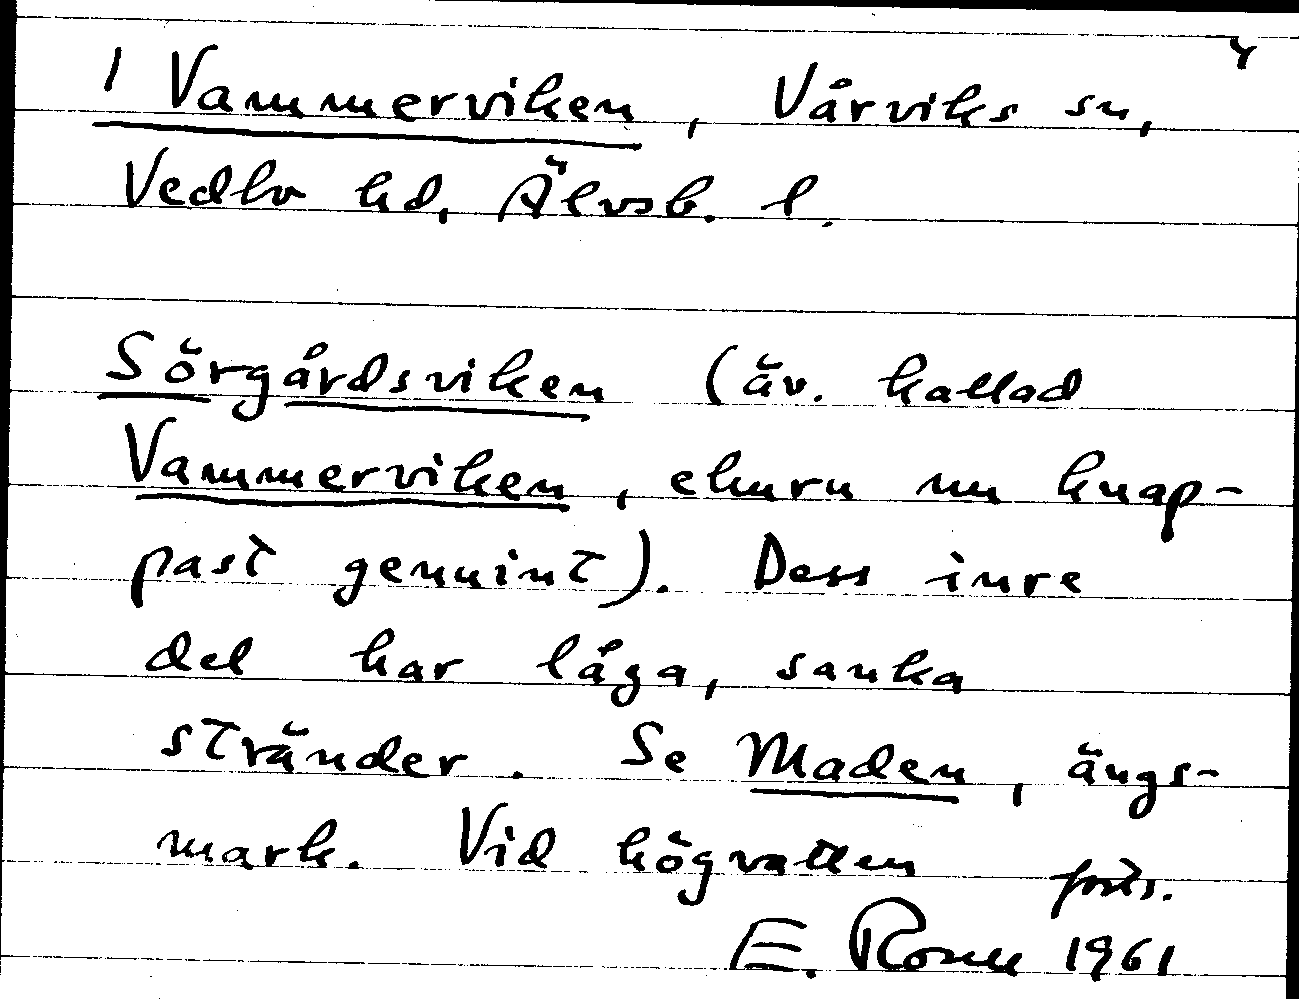 1 Vammerviken, Vårviks sn,
Vedbo hd, Älvsb. l.
Sörgårdsviken (äv. kallad
Vammerviken, ehuru nu knap-
past genuint). Dess inre
del har låga, sanka
stränder. Se Maden, ängs-
mark. Vid högvatten forts.
E. 1961